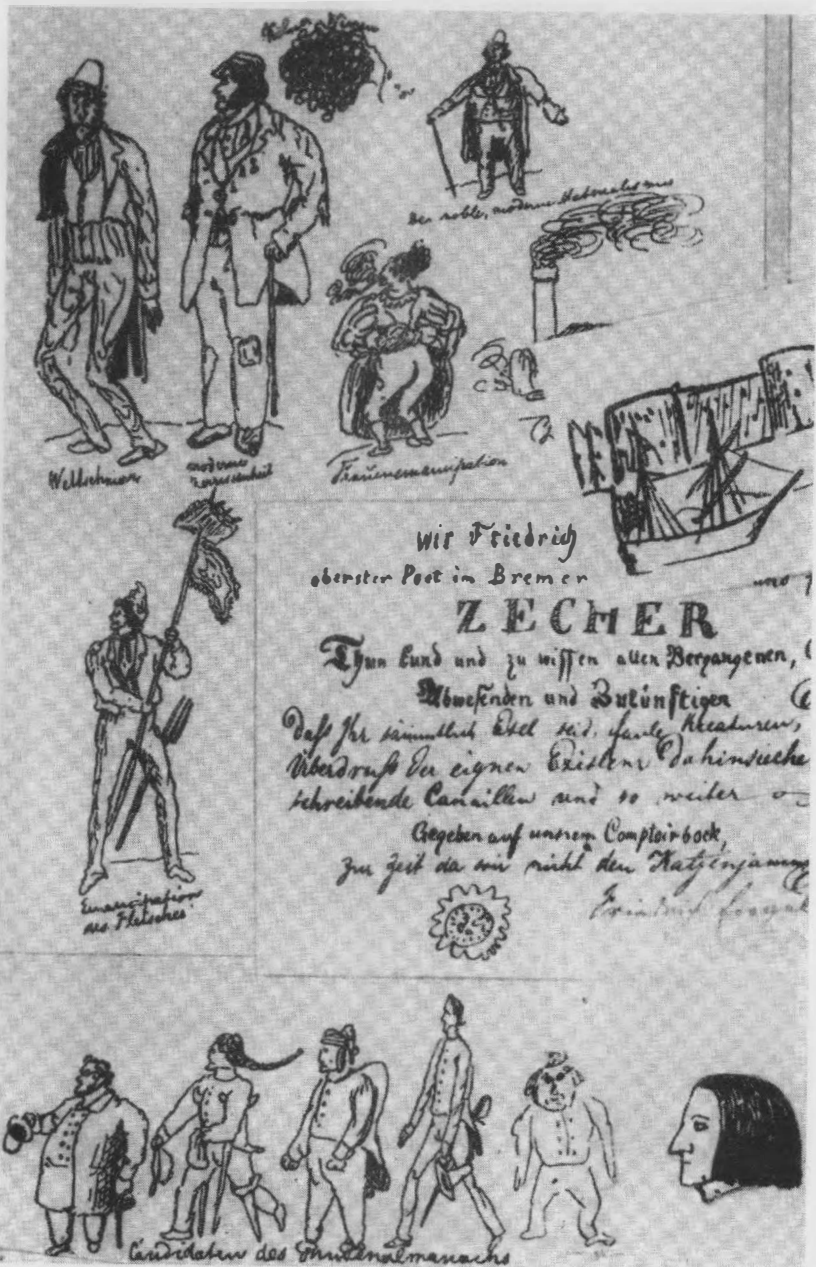 Der noble, moderne Materialismus
Weltschmerz
moderne
Zerrissenheit
Frauenemancipation
Wir Friedrich
oberster Poet im Bremer
und
ZECHER
Thun kund und zu wissen allen Vergangenen,
Abwesenden und Zukünftigen
dass Ihr sämmtlich Esel seid, faule Kreaturen,
Überdruss der eignen Existenz dahinsieche
schreibende Canaillen und so weiter
Gegeben auf unsrem Comptoirbock,
zur Zeit da wir nicht den Katzenjamm
Friedrich
Emancipation
des Fleisches
Candidaten des Musenalmanachs